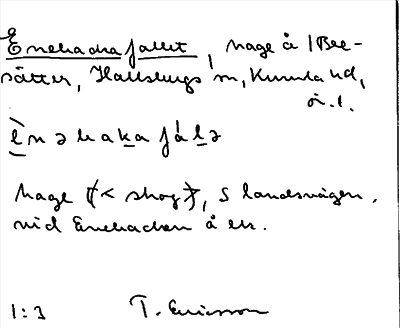 Enebackafallet, hage å 1 Bre-
sätter, Hallsbergs sn, Kumla hd,
ör. l.
è̱n ə b a k̠a f á l̠ ə
hage (< skog), S landsvägen,
vid Enebacken å ek.
1:3 T. Ericsson